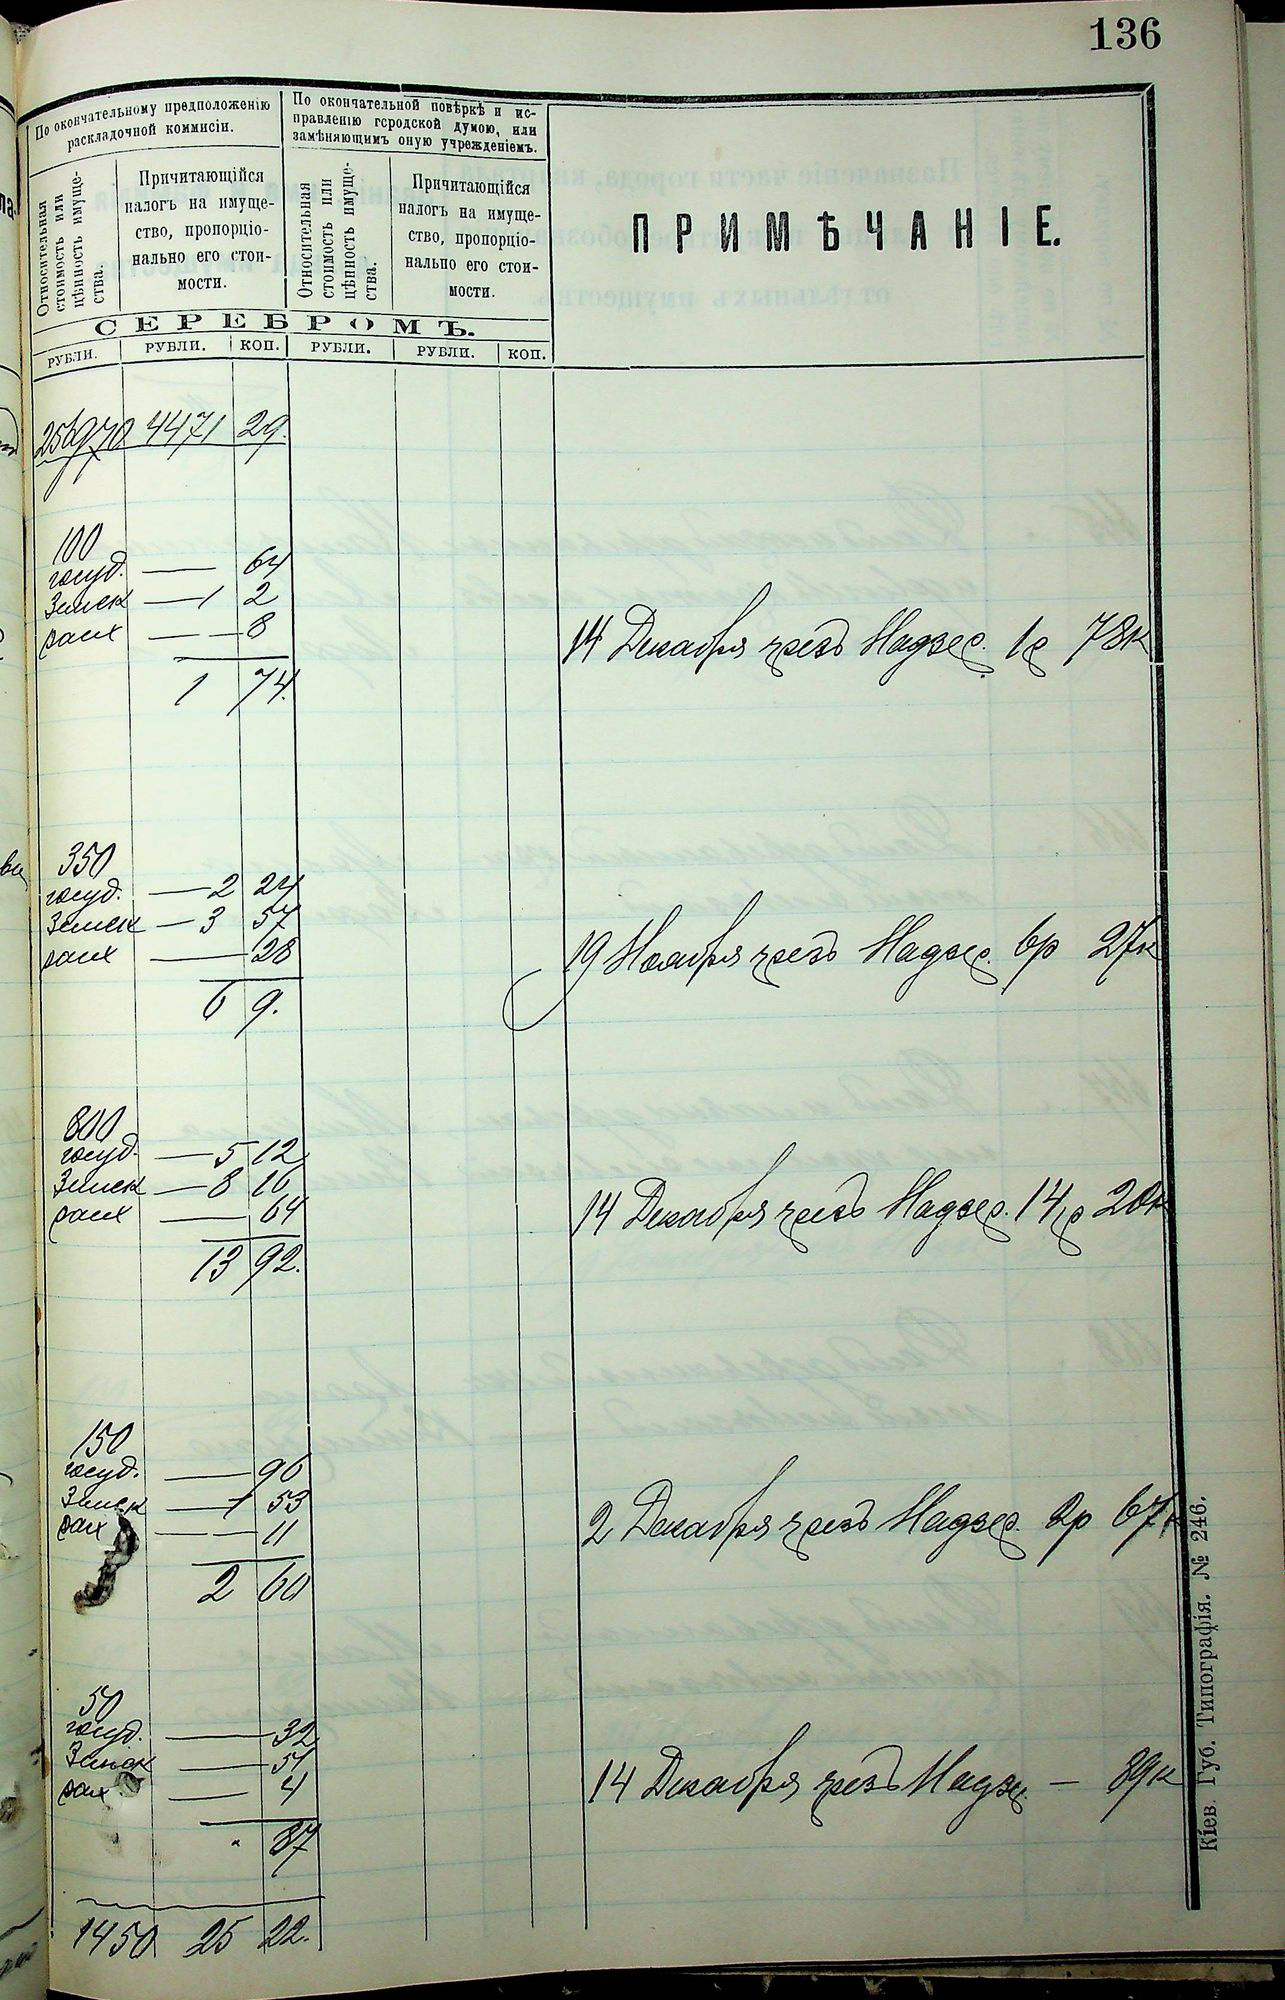 136
По окончательному предположенію
раскладочной коммисіи.
По окончательной повѣркѣ и ис-
правленію городской думою, или
замѣняющимъ оную учрежденіемъ.
Относительная
стоимость или
цѣнность имуще-
ства.
Причитающійся
налогъ на имуще-
ство, пропорціо-
нально его стои-
мости.
Относительная
стоимость или
цѣнность имуще-
ства.
Причитающійся
налогъ на имуще-
ство, пропорціо-
нально его стои-
мости.
ПРИМѢЧАНІЕ.
СЕРЕБРОМЪ.
РУБЛИ. РУБЛИ. КОП. РУБЛИ. РУБЛИ. КОП.
256970 4471 29.
100
госуд. — 64
Земск — 1 2
раск — — 8
14 Декабря чрезъ Надзер. 1р 78к
1 74.
350
госуд. — 2 24
Земск — 3 57
раск — 28
19 Ноября чрезъ Надзер. 6р 27к
6 9.
800
госуд. — 5 12
Земск — 8 16
раск — 64
14 Декабря чрезъ Надзер. 14р 20к
13 92.
150
госуд. — 96
Земск — 1 53
раск — — 11
2 Декабря чрезъ Надзер. 2р 67к
2 60
50
госуд. — 32
Земск — 51
раск — 4
14 Декабря чрезъ Надзр. — 89к
87
1450 25 22.
Кіев. Губ. Типографія. № 246.